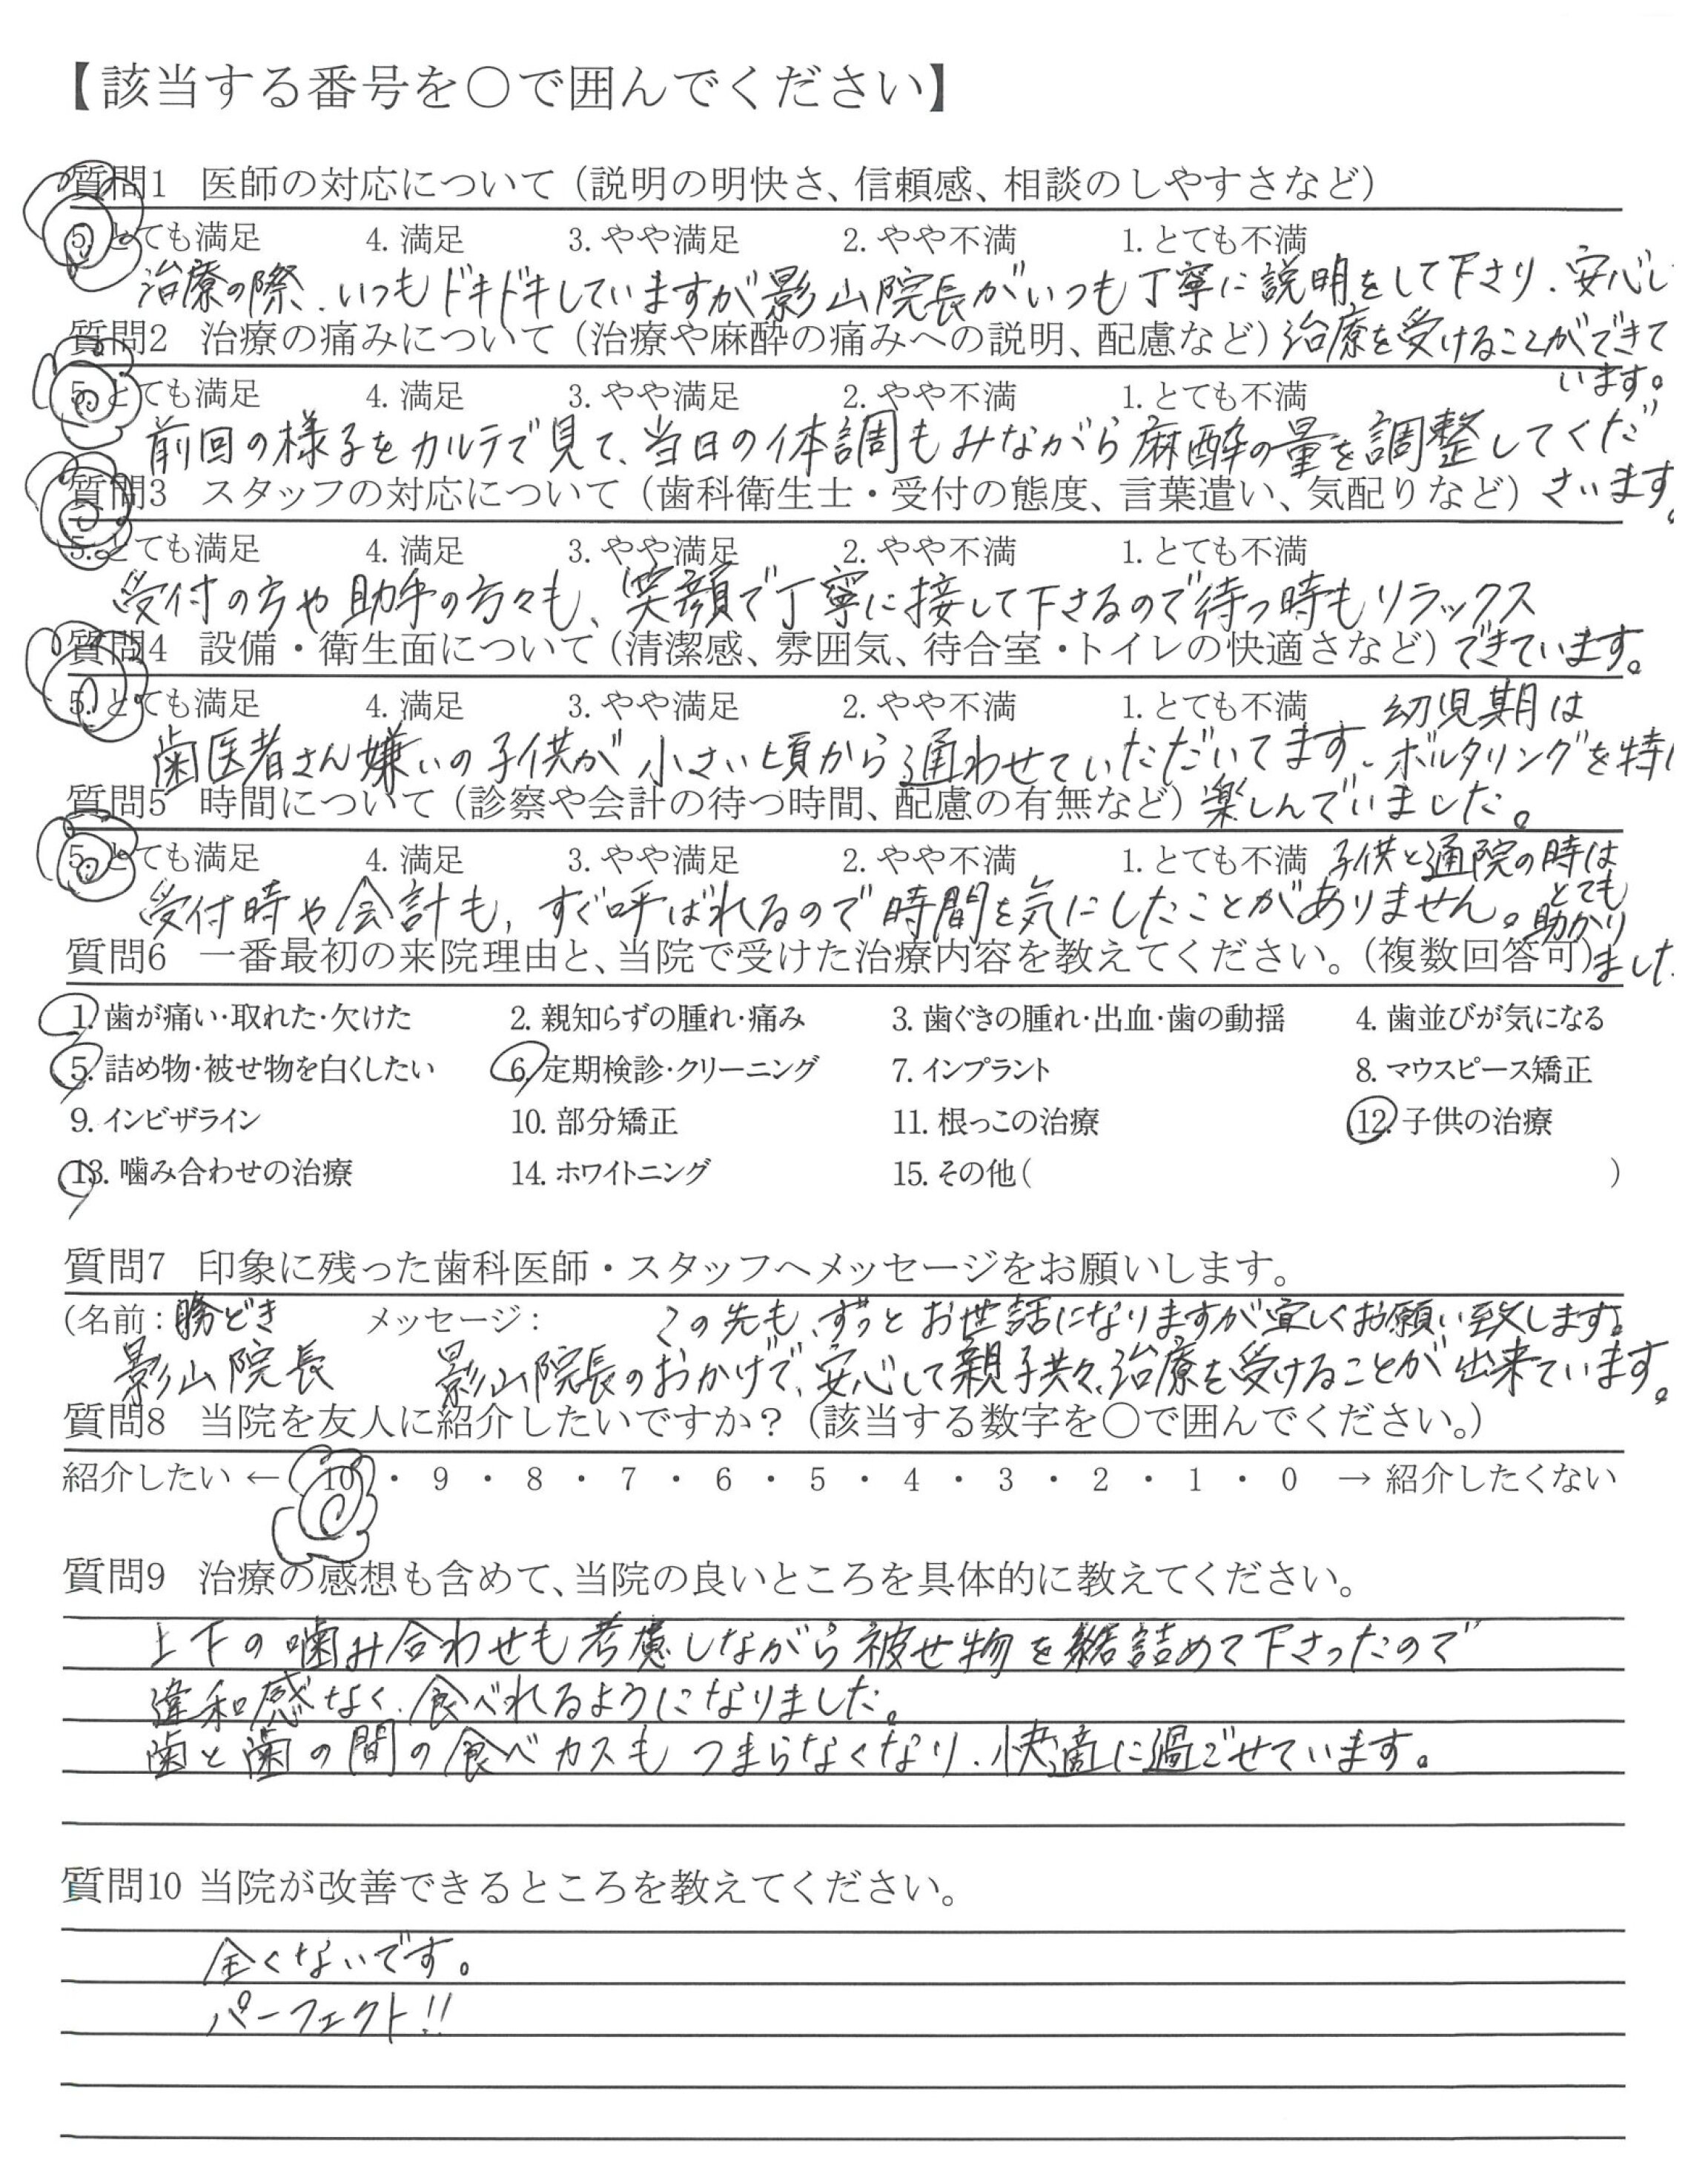 【該当する番号を〇で囲んでください】
質問1 医師の対応について（説明の明快さ、信頼感、相談のしやすさなど）
5. とても満足 4. 満足 3. やや満足 2. やや不満 1. とても不満
治療の際、いつもドキドキしていますが影山院長がいつも丁寧に説明をして下さり、安心し
治療を受けることができて
います。
質問2 治療の痛みについて（治療や麻酔の痛みへの説明、配慮など）
5. とても満足 4. 満足 3. やや満足 2. やや不満 1. とても不満
前回の様子をカルテで見て、当日の体調もみながら麻酔の量を調整してくだ
さいます。
質問3 スタッフの対応について（歯科衛生士・受付の態度、言葉遣い、気配りなど）
5. とても満足 4. 満足 3. やや満足 2. やや不満 1. とても不満
受付の方や助手の方々も、笑顔で丁寧に接して下さるので待つ時もリラックス
できています。
質問4 設備・衛生面について（清潔感、雰囲気、待合室・トイレの快適さなど）
5. とても満足 4. 満足 3. やや満足 2. やや不満 1. とても不満
歯医者さん嫌いの子供が小さい頃から通わせていただいてます、
幼児期は
ボルタリングを特に
楽しんでいました。
質問5 時間について（診察や会計の待つ時間、配慮の有無など）
5. とても満足 4. 満足 3. やや満足 2. やや不満 1. とても不満
受付時や会計も、すぐ呼ばれるので時間を気にしたことがありません。
子供と通院の時は
とても
助かり
ました
質問6 一番最初の来院理由と、当院で受けた治療内容を教えてください。（複数回答可）
1. 歯が痛い・取れた・欠けた 2. 親知らずの腫れ・痛み 3. 歯ぐきの腫れ・出血・歯の動揺 4. 歯並びが気になる
5. 詰め物・被せ物を白くしたい 6. 定期検診・クリーニング 7. インプラント 8. マウスピース矯正
9. インビザライン 10. 部分矯正 11. 根っこの治療 12. 子供の治療
13. 噛み合わせの治療 14. ホワイトニング 15. その他( )
質問7 印象に残った歯科医師・スタッフへメッセージをお願いします。
（名前：勝どき メッセージ： この先も、ずっとお世話になりますが宜しくお願い致します。
影山院長 影山院長のおかげで、安心して親子共々、治療を受けることが出来ています。
質問8 当院を友人に紹介したいですか？（該当する数字を〇で囲んでください。）
紹介したい ← 10 ・ 9 ・ 8 ・ 7 ・ 6 ・ 5 ・ 4 ・ 3 ・ 2 ・ 1 ・ 0 → 紹介したくない
質問9 治療の感想も含めて、当院の良いところを具体的に教えてください。
上下の噛み合わせも考慮しながら被せ物を詰めて下さったので
違和感なく、食べれるようになりました。
歯と歯の間の食べカスもつまらなくなり、快適に過ごせています。
質問10 当院が改善できるところを教えてください。
全くないです。
パーフェクト!!